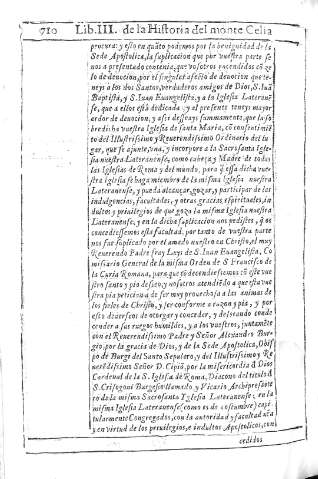 710 Lib. III. de la Historia del monte Celia
procura: y esto en quãto podemos por la benignidad de la
Sede Apostolica, la suplicacion que por vuestra parte se
nos a presentado contenia, que vosotros encendidos cõ ze-
lo de devocion, por el singular afecto de devocion que te-
neys a los dos Santos, verdaderos amigos de Dios, S. Iuã
Baptista, y S. Iuan Euangelista, y a la Iglesia Laterane-
nse, que a ellos està dedicada: y al presente teneys mayor
ardor de devocion, y assi desseays summamente, que la so-
bredicha vuestra Iglesia de santa Maria, cõ consentimiẽ
to del Illustrissimo y Reverendissimo Ordinario del lu-
gar, que se ajunte, una, y incorpore a la Sacrosanta Igle-
sia nuestra Lateranense, como cabeça y Madre de todas
las Iglesias de Roma y del mundo, para q̃ essa dicha vue-
stra iglesia se haga miembro de la misma Iglesia nuestra
Lateranense, y pueda alcançar, gozar, y participar de las
indulgencias, facultades, y otras gracias espirituales, in-
dultos y privilegios de que goza la misma Iglesia nuestra
Lateranense, y en la dicha suplicacion nos pedistes, q̃ os
concediessemos esta facultad. por tanto de vuestra parte
nos fue suplicado por el amado nuestro en Christo, el muy
Reverendo Padre fray Luys de S. Iuan Euangelista, Co
missario General de la misma Orden de S. Francisco de
la Curia Romana, para que cõdecendiessemos cõ este vue
stro santo y pio desseo, y nosotros atendiẽdo a que esta vue
stra pia peticion a de ser muy provechosa a las animas de
los fieles de Christo, y ser conforme a razon y pia, y por
esto diversos de otorgar y conceder, y desseando conde
cender a sus ruegos humildes, y a los vuestros, juntamẽte
con el Reverendissimo Padre y Señor Alexandro Bur-
gio, por la gracia de Dios, y de la Sede Apostolica, Obis
po de Burgo del Santo Sepulcro, y del Illustrissimo y Re
verẽdissimo Señor D. Cipiõ, por la misericordia d Dios
Cardenal de la S. Iglesia de Roma, Diacono del titulo d
S. Crisogoni Burgesio llamado, y Vicario Archipresbite
ro de la misma Sacrosanta Yglesia Lateranense, en la
misma Iglesia Lateranense (como es de costumbre) capi
tularmente Congregados, con la autoridad y facultad nra
y en virtud de los privilegios, e indultos Apostolicos, con
cedidos